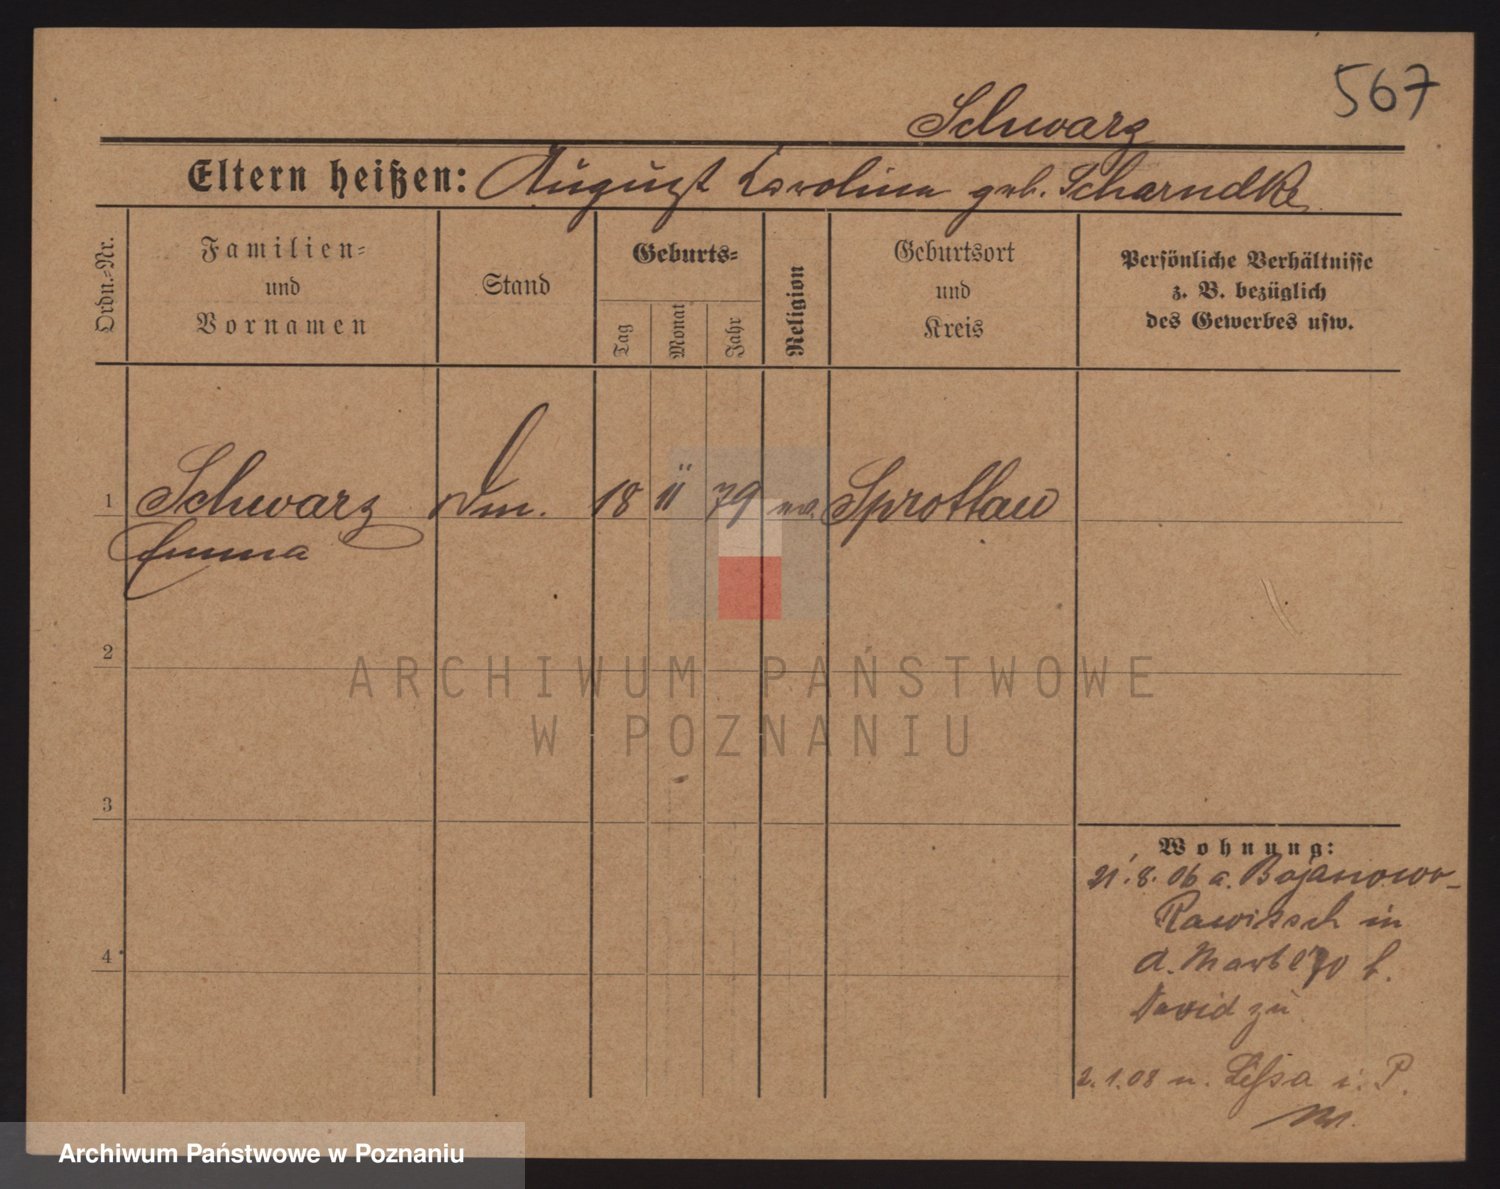 567
Schwarz
Eltern heißen: August Karoline geb. Scharndke
Ordn.-Nr.
Familien-
und
Vornamen
Stand
Geburts-
Tag
Monat
Jahr
Religion
Geburtsort
und
Kreis
Persönliche Verhältnisse
z. B. bezüglich
des Gewerbes usw.
1
Schwarz
Emma
18 II 79
Sprottau
2
3
4
Wohnung:
21.8.06 a. Bojanowo-
Rawitsch in
David zu
2.1.08 n. Lissa i. P.
ARCHIWUM PAŃSTWOWE
W POZNANIU
Archiwum Państwowe w Poznaniu